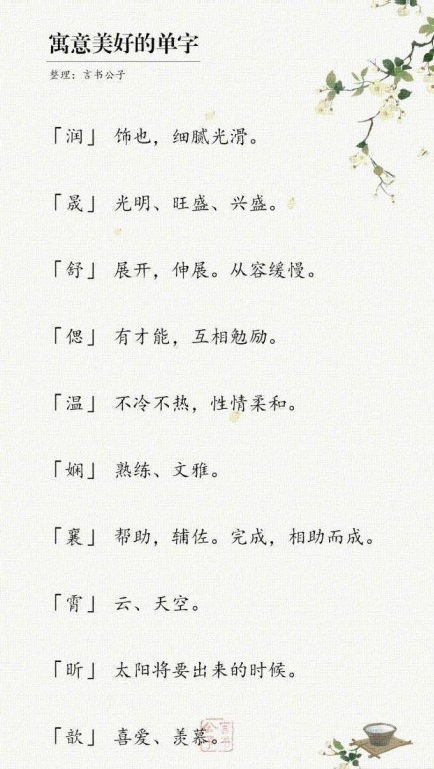 寓意美好的单字
整理：言书公子
「润」 饰也，细腻光滑。
「晟」 光明、旺盛、兴盛。
「舒」 展开，伸展。从容缓慢。
「偲」 有才能，互相勉励。
「温」 不冷不热，性情柔和。
「娴」 熟练、文雅。
「襄」 帮助，辅佐。完成，相助而成。
「霄」 云、天空。
「昕」 太阳将要出来的时候。
「歆」 喜爱、羡慕。